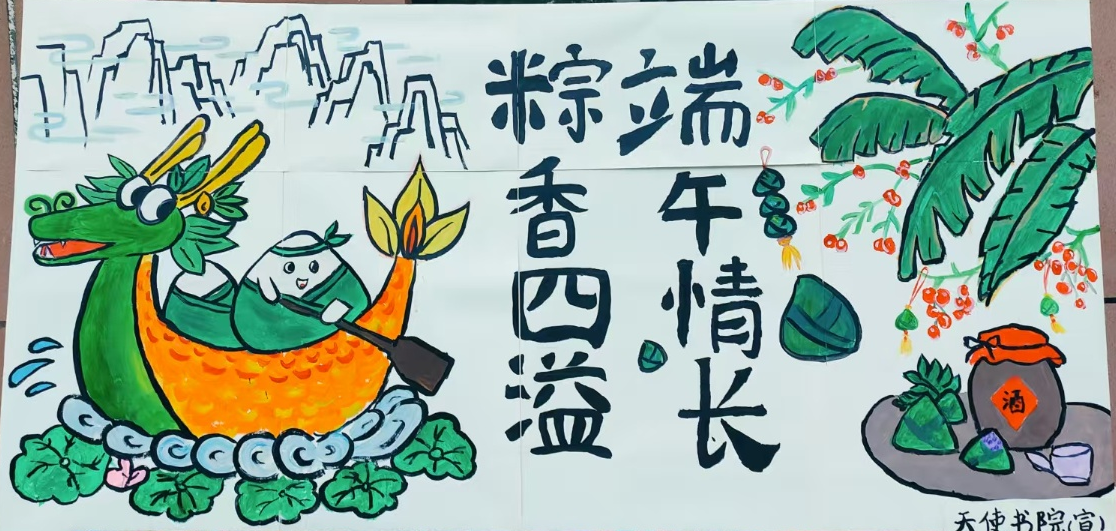 端午情长
粽香四溢
酒
天使书院(宣)